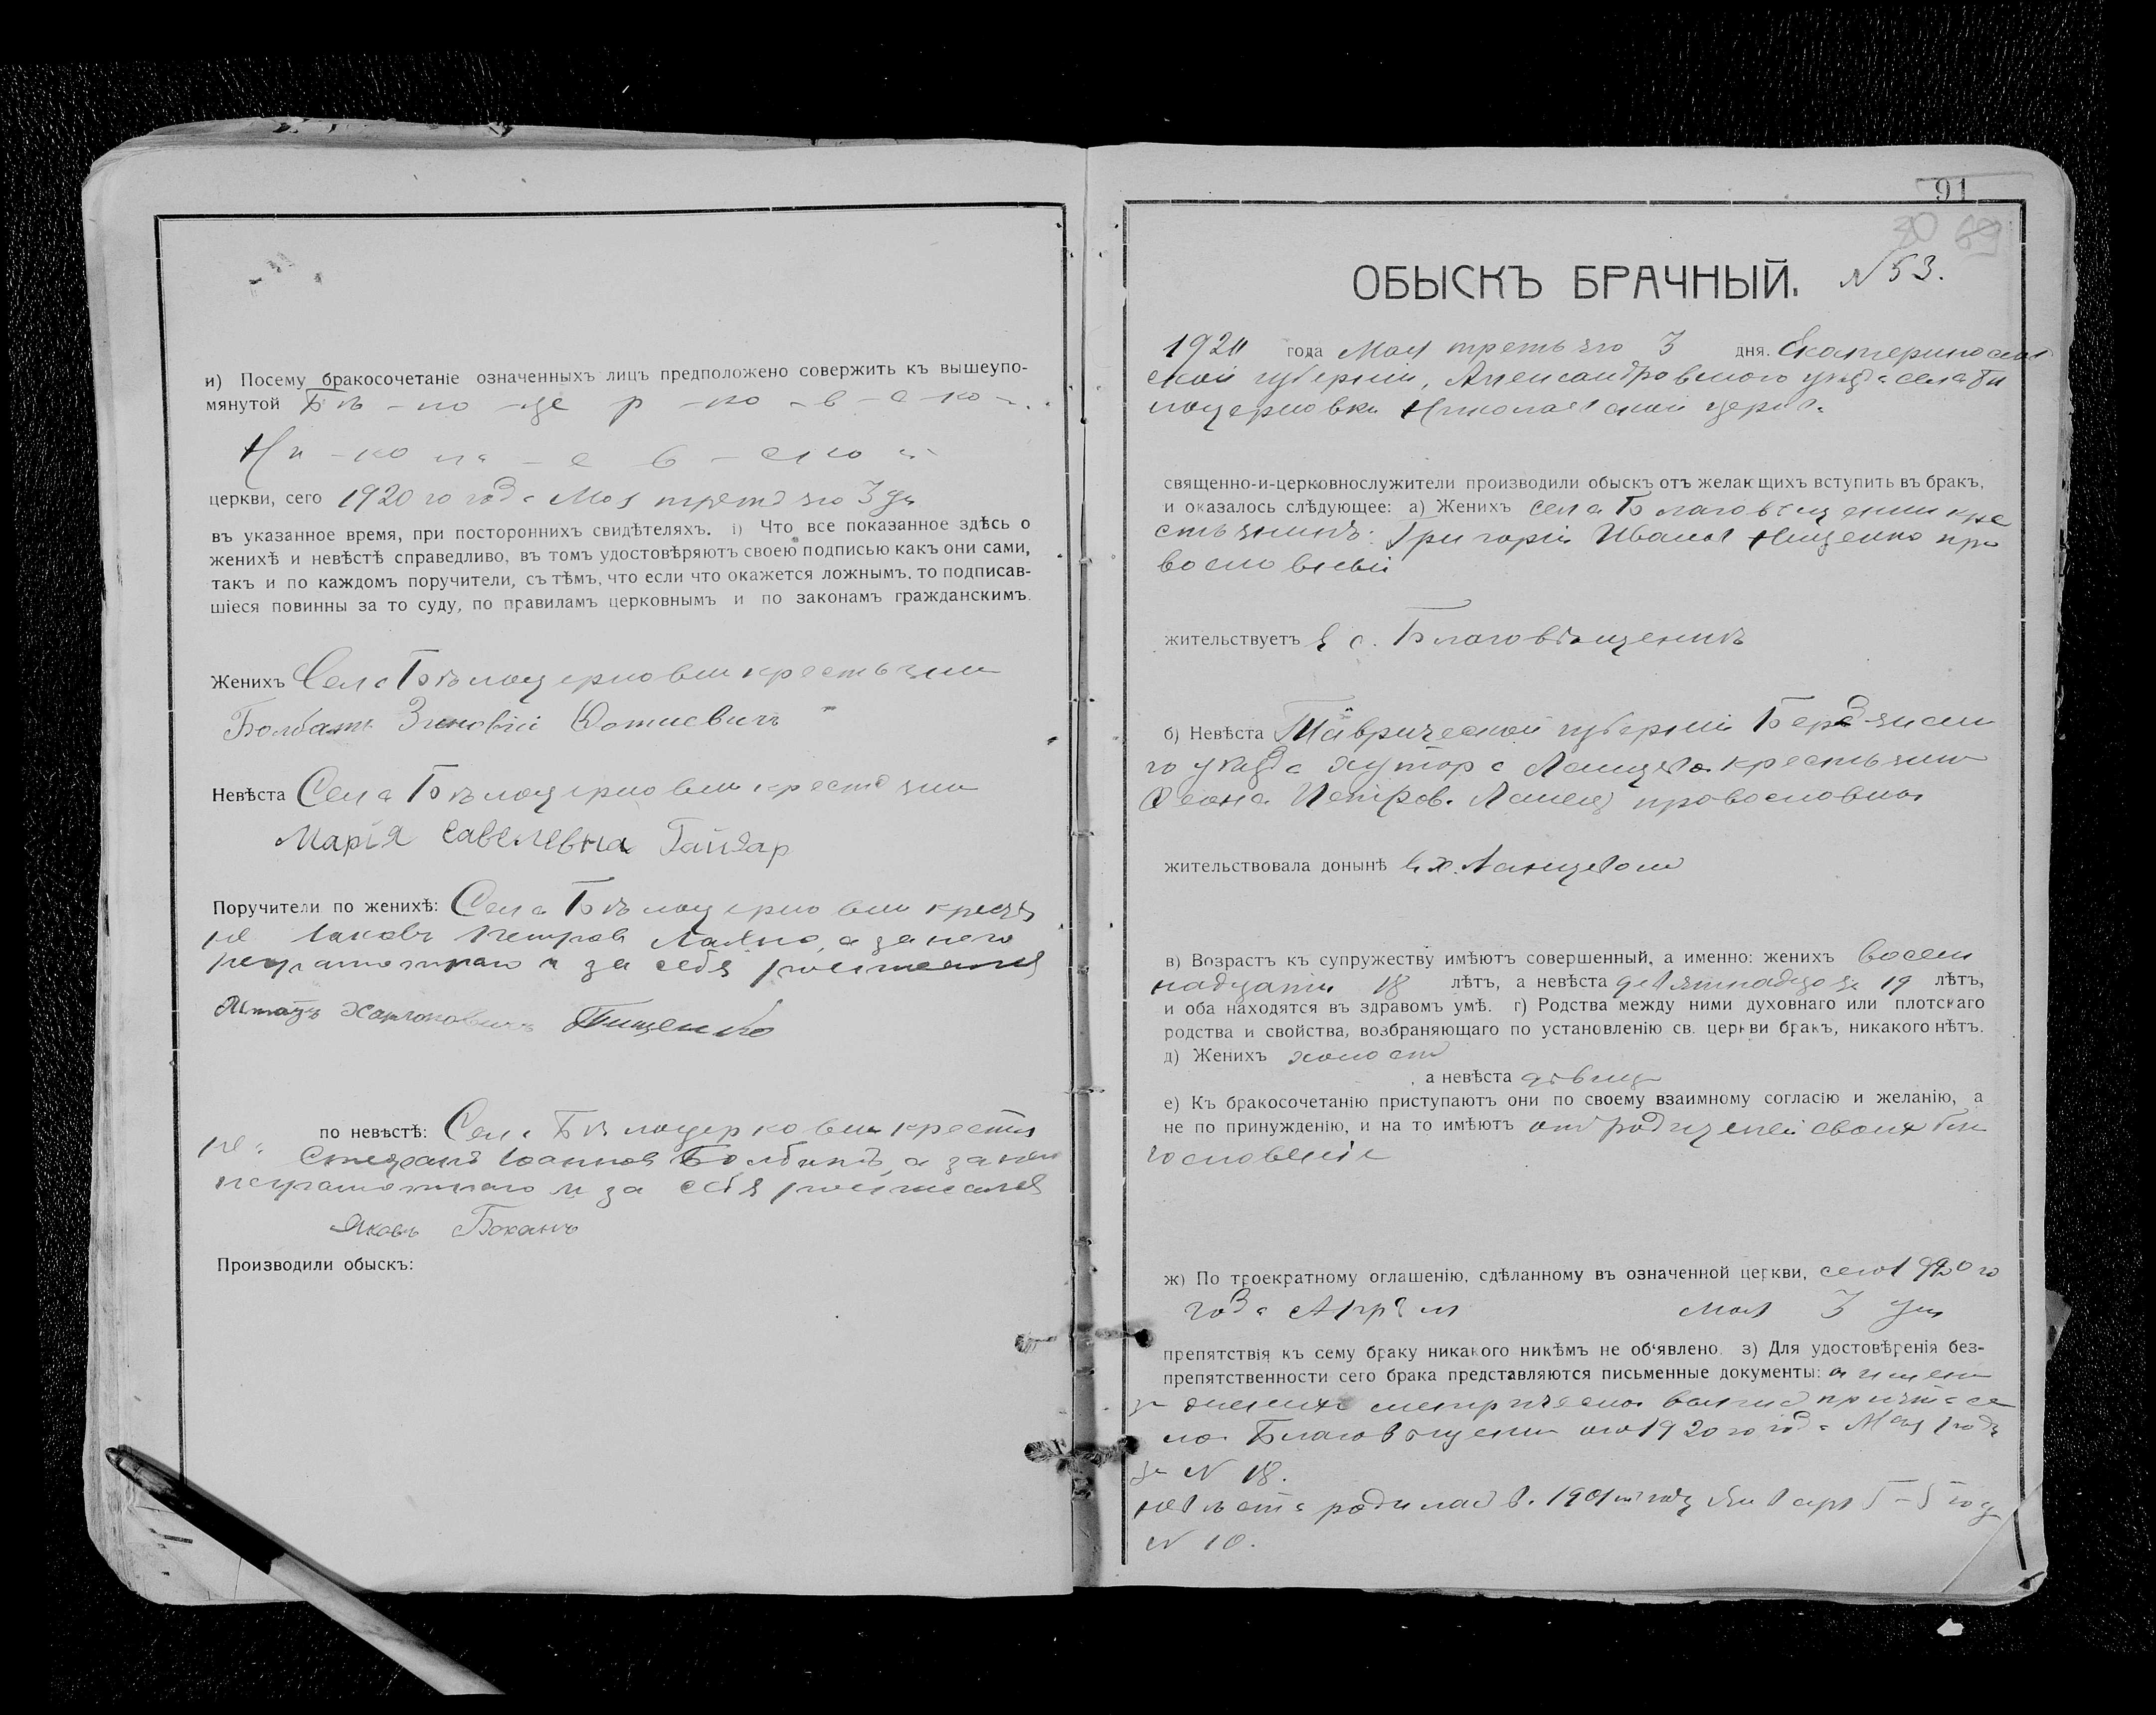 и) Посему бракосочетаніе означенныхъ лицъ предположено совержить къ вышеупо-
мянутой Бѣ-ло-це р-ко-в-с-ко-
Ни-ко ла-е в-ско
церкви, сего 1920 го года Мая третьяго 3 дня
въ указанное время, при постороннихъ свидѣтеляхъ. і) Что все показанное здѣсь о
женихѣ и невѣстѣ справедливо, въ томъ удостовѣряютъ своею подписью какъ они сами,
такъ и по каждомъ поручители, съ тѣмъ, что если что окажется ложнымъ, то подписав-
шіеся повинны за то суду, по правиламъ церковнымъ и по законамъ гражданскимъ.
Женихъ Села Бѣлоцерковки крестьянин
Болбатъ Зиновій Фотиевичъ
Невѣста Села Бѣлоцерковки крестьян
Марія Савелевна Гайдар
Поручители по женихѣ: Села Бѣлоцерковки кресть
не Іаковъ Петровъ а за него
неграмотнаго и за себя росписался
Харлоповичъ Тищенко
по невѣстѣ: Села Бѣлоцерковки крестья
не: Стефанъ Іоанновъ Болбатъ, а за него
неграмотнаго и за себя росписался
Яковъ Боканъ
Производили обыскъ:
91
30 69
ОБЫСКЪ БРАЧНЫЙ. N 53.
1920 года Мая третьяго 3 дня. Екатеринослав
ской губерніи, Александровского уѣзда села Бѣ
лоцерковки Николаевской церкв
священно-и-церковнослужители производили обыскъ отъ желающихъ вступить въ бракъ,
и оказалось слѣдующее: а) Женихъ села Благовѣщенки кре
стьянинъ: Григорій Иванов Нищенко пра
вославный
жительствуетъ в с. Благовѣщенкѣ
б) Невѣста Таврической губерніи Бердянска
го уѣзда хутора Ланцева крестьян
Петров. Ланец православная
жительствовала донынѣ в х. Ланцевом
в) Возрастъ къ супружеству имѣютъ совершенный, а именно: женихъ восем
надцати 18 лѣтъ, а невѣста девятнадца 19 лѣтъ,
и оба находятся въ здравомъ умѣ. г) Родства между ними духовнаго или плотскаго
родства и свойства, возбраняющаго по установленію св. церкви бракъ, никакого нѣтъ.
д) Женихъ холост
, а невѣста дѣвица
е) Къ бракосочетанію приступаютъ они по своему взаимному согласію и желанію, а
не по принужденію, и на то имѣютъ от родителей своих бла
гословеніе
ж) По троекратному оглашенію, сдѣланному въ означенной церкви, сего 1920 го
года Апрѣля мая 3 дня
препятствія къ сему браку никакого никѣмъ не об'явлено. з) Для удостовѣренія без-
препятственности сего брака представляются письменные документы: а имен
за женихе метрическая выпис причта се
ла Благовѣщенки 1920 го года Мая
за N 18.
невѣста родилась в. 1901 м году Января 5-5 го
N 10.